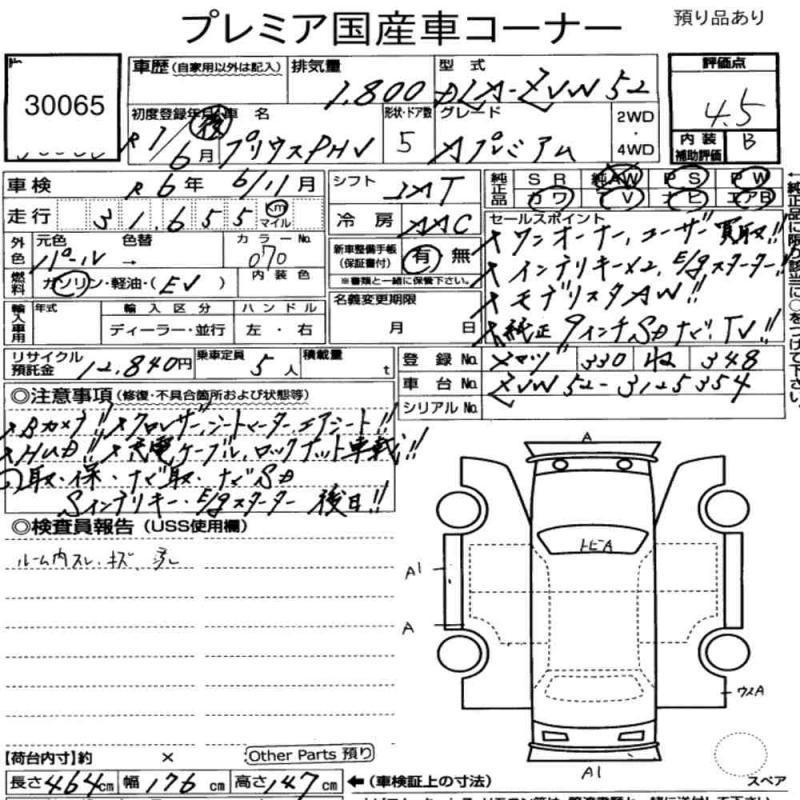 プレミア国産車コーナー
預り品あり
30065
車歴 (自家用以外は記入) 排気量 型式
1,800 DLA-ZVW52
評価点
4.5
初度登録年月 車名 形状・ドア数 グレード 2WD・4WD
R1/6月 後 プリウスPHV 5 Aプレミアム
内装補助評価 B
車検 R6年 6/11月
シフト IAT
純正品 SR 純AW PS PW
カワ TV ナビ エアB
走行 31,655 km マイル
冷房 AAC
外色 元色 色替 カラーNo.
パール → 070
新車整備手帳(保証書付) 有 無
※書類と一緒に保管下さい。
セールスポイント
×ワンオーナー、ユーザー買取!!
×インテリキー×2、E/gスターター!!
×モデリスタAW!!
×純正9インチSDナビ、TV!!
燃料 ガソリン・軽油・(EV) 内装色
名義変更期限
月 日
輸入車用 年式 輸入区分 ハンドル
ディーラー・並行 左・右
リサイクル預託金 12,840円 乗車定員 5人 積載量 t
登録No. 330 348
車台No. ZVW52-3125354
シリアルNo.
◎注意事項 (修復・不具合箇所および状態等)
×Bカメラ!!×クロレザ、シートヒーター、エアシート!!
×HUD!!×充電ケーブル、ロックナット車載!!
取・保・ナビ取・ナビSD
Sインテリキー・E/gスターター 後日!!
◎検査員報告 (USS使用欄)
ルーム内スレ、キズ、汚レ
A
トビA
A1
A
ウスA
A1
スペア
【荷台内寸】約 ×
Other Parts 預り
長さ464cm 幅176cm 高さ147cm
←(車検証上の寸法)